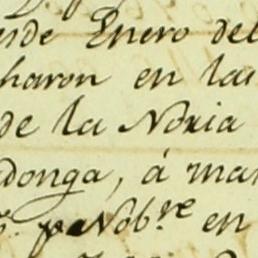 esde Enero del
charon en las
de la Noria
donga, á man
Nob.re en